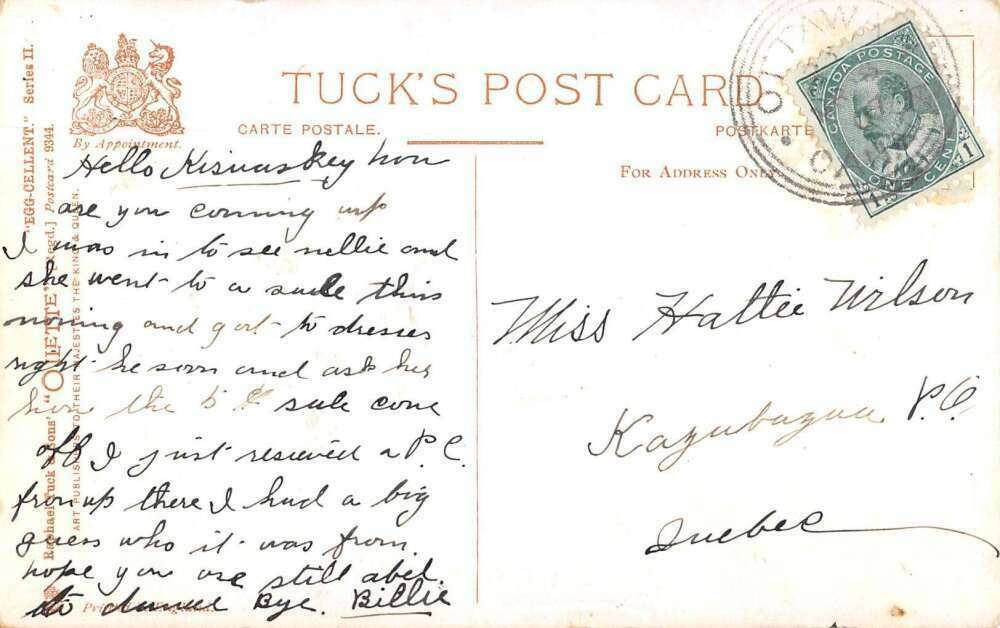 "EGG-CELLENT." Series II.
Raphael Tuck & Sons' "OILETTE" [Regd.] Postcard 9344.
ART PUBLISHERS TO THEIR MAJESTIES THE KING & QUEEN.
By Appointment.
TUCK'S POST CARD
CARTE POSTALE.
POSTKARTE
FOR ADDRESS ONLY
OTTAWA
CANADA POSTAGE
ONE CENT
1
Hello how
are you comming up
I was in to see nellie and
she went to a sale this
morning and got to dresses
right he soon and ask her
how the 5 ¢ sale come
off I just reseived a P.C.
from up there I had a big
guess who it was from.
hope you are still abel.
to dance Bye. Billie
Printed in England.
Miss Hattie Wilson
Kazubazua P.O.
Quebec